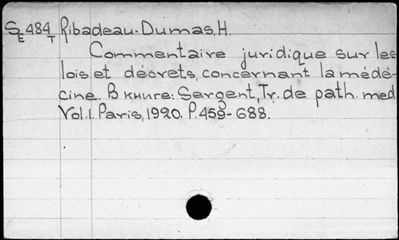 SE 484 T Ribadeau-Dumas, H.
Commentaire juridique sur les
lois et décrets, concernant la médé-
cine. В книге: Sergent, Tr. de path. med
Vol. I. Paris, 1920. P. 459-688.